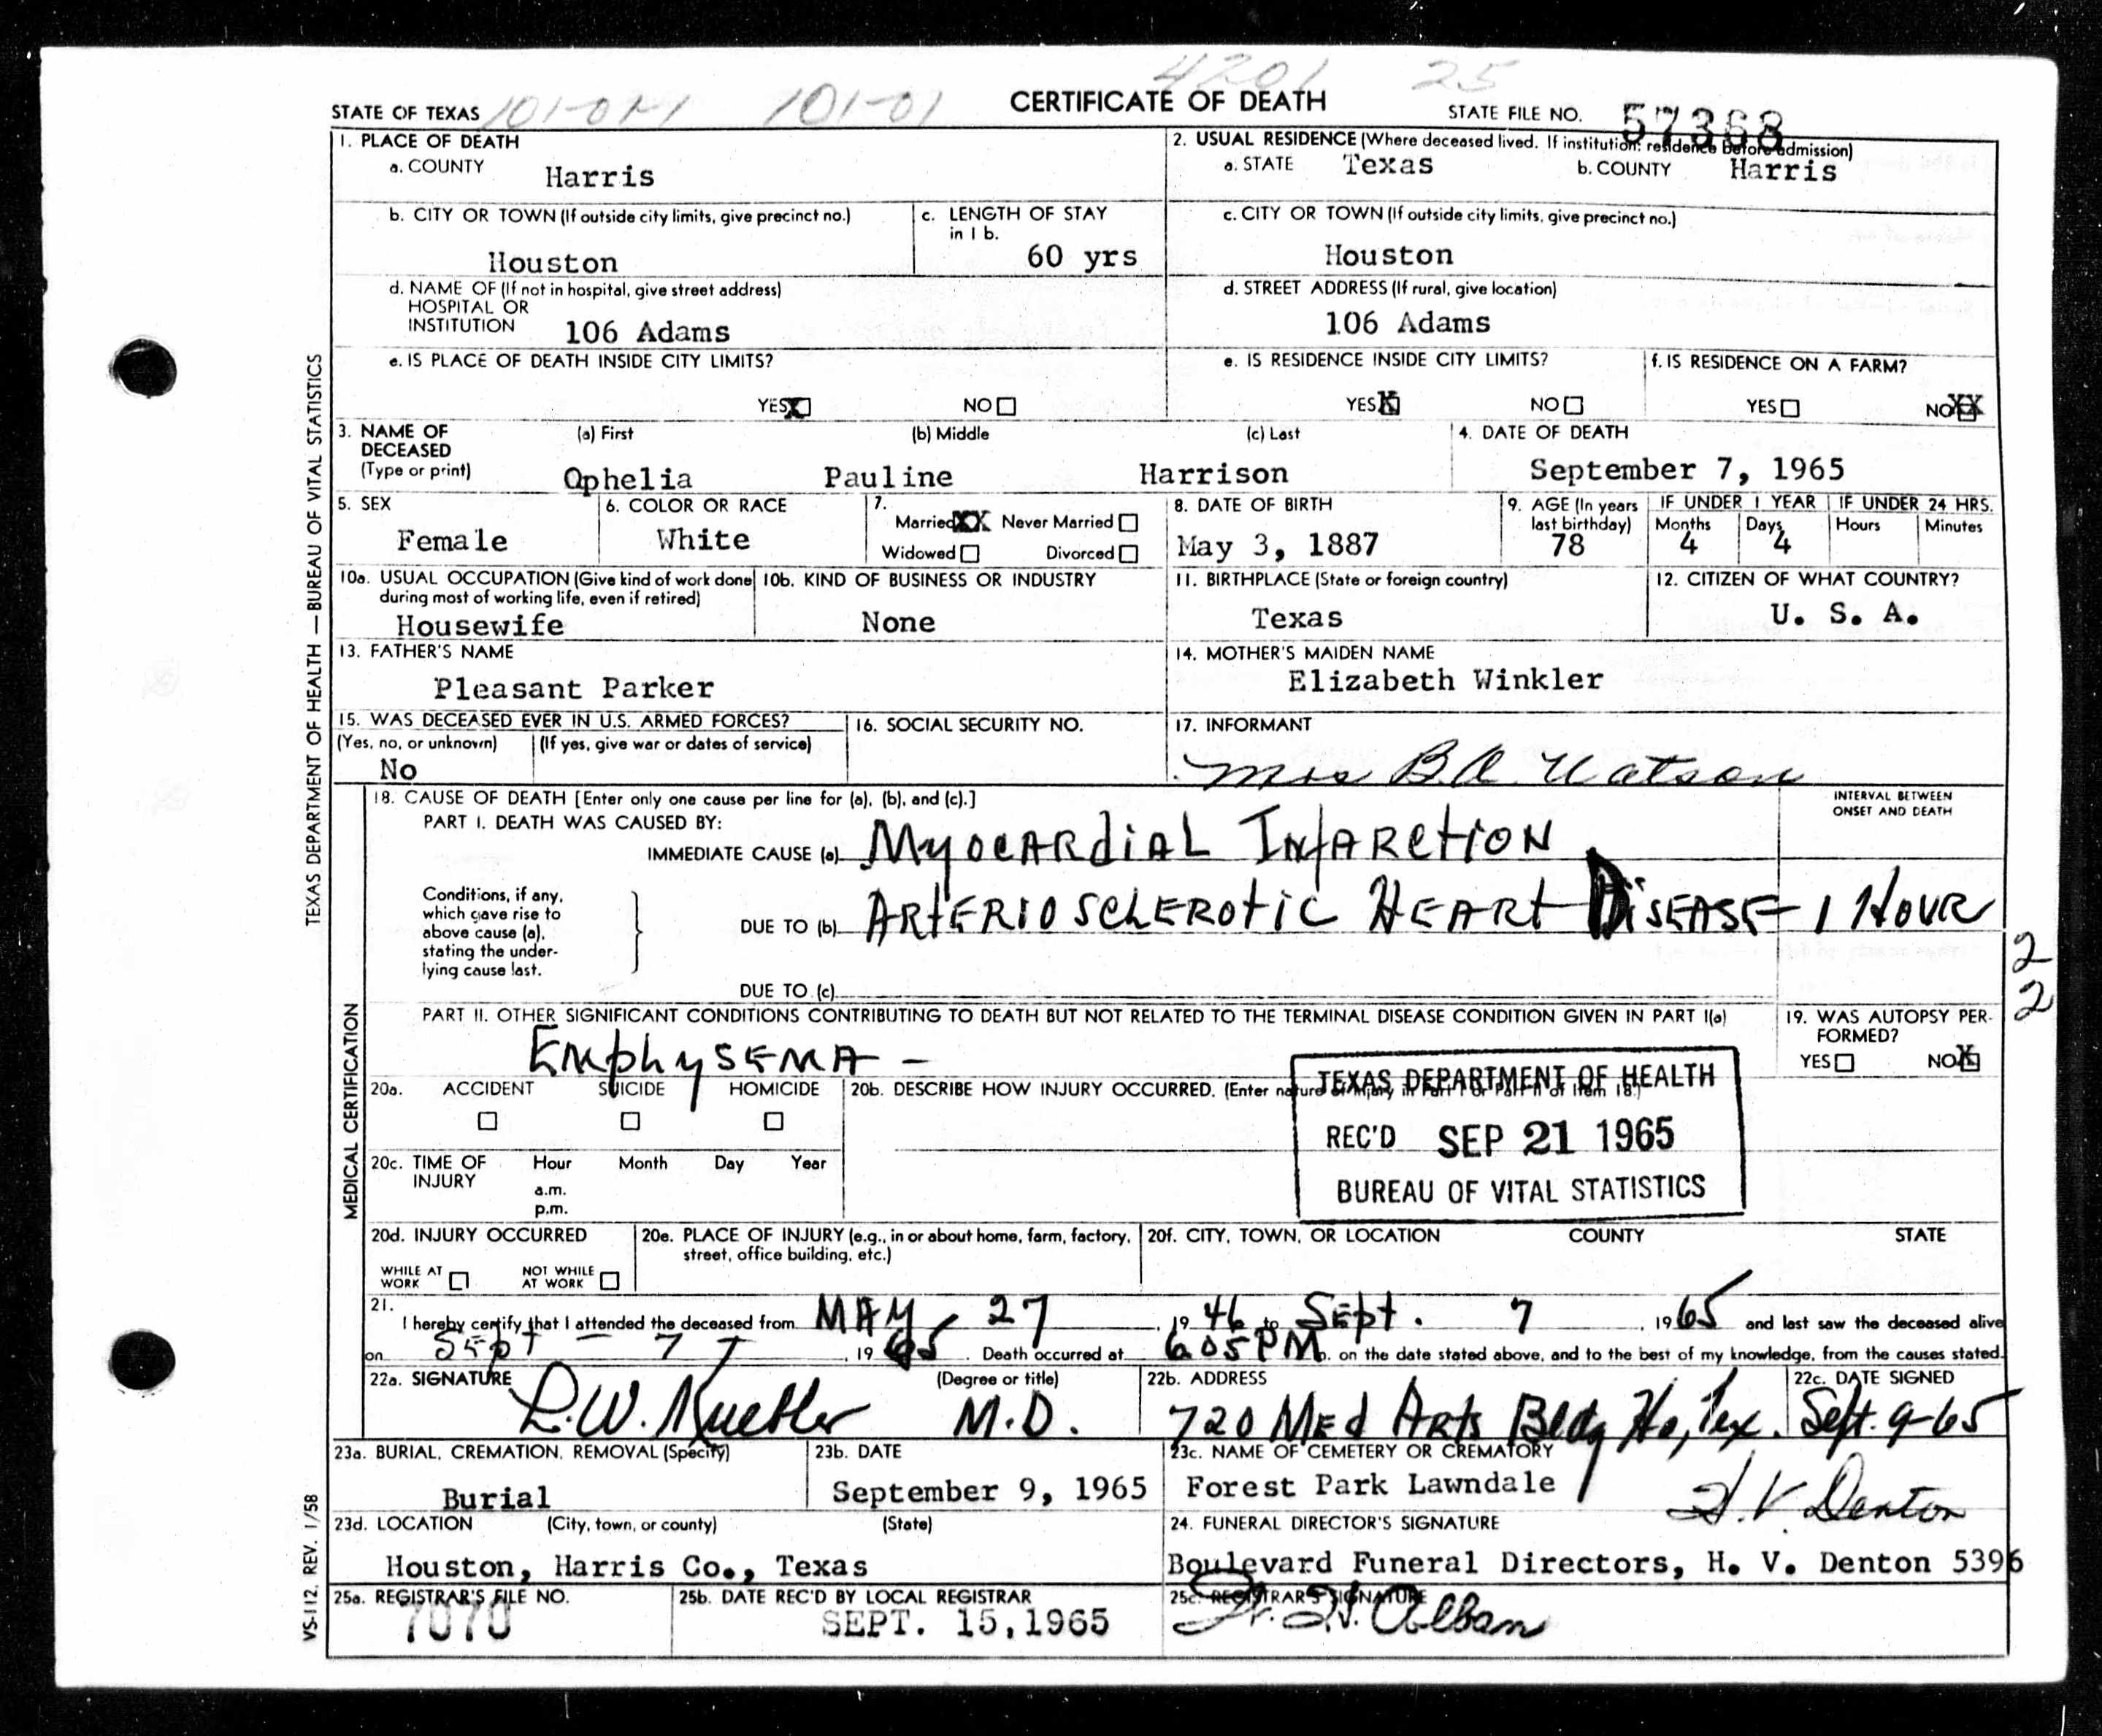 4201 25
STATE OF TEXAS 101-01-1 101-01 CERTIFICATE OF DEATH STATE FILE NO. 57368
1. PLACE OF DEATH
a. COUNTY Harris
2. USUAL RESIDENCE (Where deceased lived. If institution: residence before admission)
a. STATE Texas b. COUNTY Harris
b. CITY OR TOWN (If outside city limits, give precinct no.)
Houston
c. LENGTH OF STAY
in 1 b.
60 yrs
c. CITY OR TOWN (If outside city limits, give precinct no.)
Houston
d. NAME OF (If not in hospital, give street address)
HOSPITAL OR
INSTITUTION 106 Adams
d. STREET ADDRESS (If rural, give location)
106 Adams
e. IS PLACE OF DEATH INSIDE CITY LIMITS?
YES X NO
e. IS RESIDENCE INSIDE CITY LIMITS?
YES X NO
f. IS RESIDENCE ON A FARM?
YES NO XX
3. NAME OF
DECEASED
(Type or print)
(a) First (b) Middle (c) Last
Ophelia Pauline Harrison
4. DATE OF DEATH
September 7, 1965
5. SEX
Female
6. COLOR OR RACE
White
7.
Married XX Never Married
Widowed Divorced
8. DATE OF BIRTH
May 3, 1887
9. AGE (In years
last birthday)
78
IF UNDER 1 YEAR
Months Days
4 4
IF UNDER 24 HRS.
Hours Minutes
10a. USUAL OCCUPATION (Give kind of work done
during most of working life, even if retired)
Housewife
10b. KIND OF BUSINESS OR INDUSTRY
None
11. BIRTHPLACE (State or foreign country)
Texas
12. CITIZEN OF WHAT COUNTRY?
U. S. A.
13. FATHER'S NAME
Pleasant Parker
14. MOTHER'S MAIDEN NAME
Elizabeth Winkler
15. WAS DECEASED EVER IN U.S. ARMED FORCES?
(Yes, no, or unknown) (If yes, give war or dates of service)
No
16. SOCIAL SECURITY NO.
17. INFORMANT
Mrs B.A. Watson
18. CAUSE OF DEATH [Enter only one cause per line for (a), (b), and (c).]
PART I. DEATH WAS CAUSED BY:
IMMEDIATE CAUSE (a) Myocardial Infarction
INTERVAL BETWEEN
ONSET AND DEATH
Conditions, if any,
which gave rise to
above cause (a),
stating the under-
lying cause last.
DUE TO (b) Arteriosclerotic Heart Disease - 1 Hour
DUE TO (c)
2
2
PART II. OTHER SIGNIFICANT CONDITIONS CONTRIBUTING TO DEATH BUT NOT RELATED TO THE TERMINAL DISEASE CONDITION GIVEN IN PART I(a)
Emphysema -
19. WAS AUTOPSY PER-
FORMED?
YES NO X
20a. ACCIDENT SUICIDE HOMICIDE
20b. DESCRIBE HOW INJURY OCCURRED. (Enter nature of injury in Part I or Part II of item 18.)
TEXAS DEPARTMENT OF HEALTH
REC'D SEP 21 1965
BUREAU OF VITAL STATISTICS
20c. TIME OF
INJURY
Hour Month Day Year
a.m.
p.m.
20d. INJURY OCCURRED
WHILE AT
WORK
NOT WHILE
AT WORK
20e. PLACE OF INJURY (e.g., in or about home, farm, factory,
street, office building, etc.)
20f. CITY, TOWN, OR LOCATION COUNTY STATE
21.
I hereby certify that I attended the deceased from May 27, 1946 to Sept. 7, 1965 and last saw the deceased alive
on Sept - 7, 1965. Death occurred at 6:05 PM m. on the date stated above, and to the best of my knowledge, from the causes stated.
22a. SIGNATURE (Degree or title)
M.D.
22b. ADDRESS
720 Med Arts Bldg Ho, Tex.
22c. DATE SIGNED
Sept. 9-65
23a. BURIAL, CREMATION, REMOVAL (Specify)
Burial
23b. DATE
September 9, 1965
23c. NAME OF CEMETERY OR CREMATORY
Forest Park Lawndale
23d. LOCATION (City, town, or county) (State)
Houston, Harris Co., Texas
24. FUNERAL DIRECTOR'S SIGNATURE
H.V. Denton
Boulevard Funeral Directors, H. V. Denton 5396
25a. REGISTRAR'S FILE NO.
7070
25b. DATE REC'D BY LOCAL REGISTRAR
SEPT. 15, 1965
25c. REGISTRAR'S SIGNATURE
TEXAS DEPARTMENT OF HEALTH — BUREAU OF VITAL STATISTICS
MEDICAL CERTIFICATION
VS-112. REV. 1/58